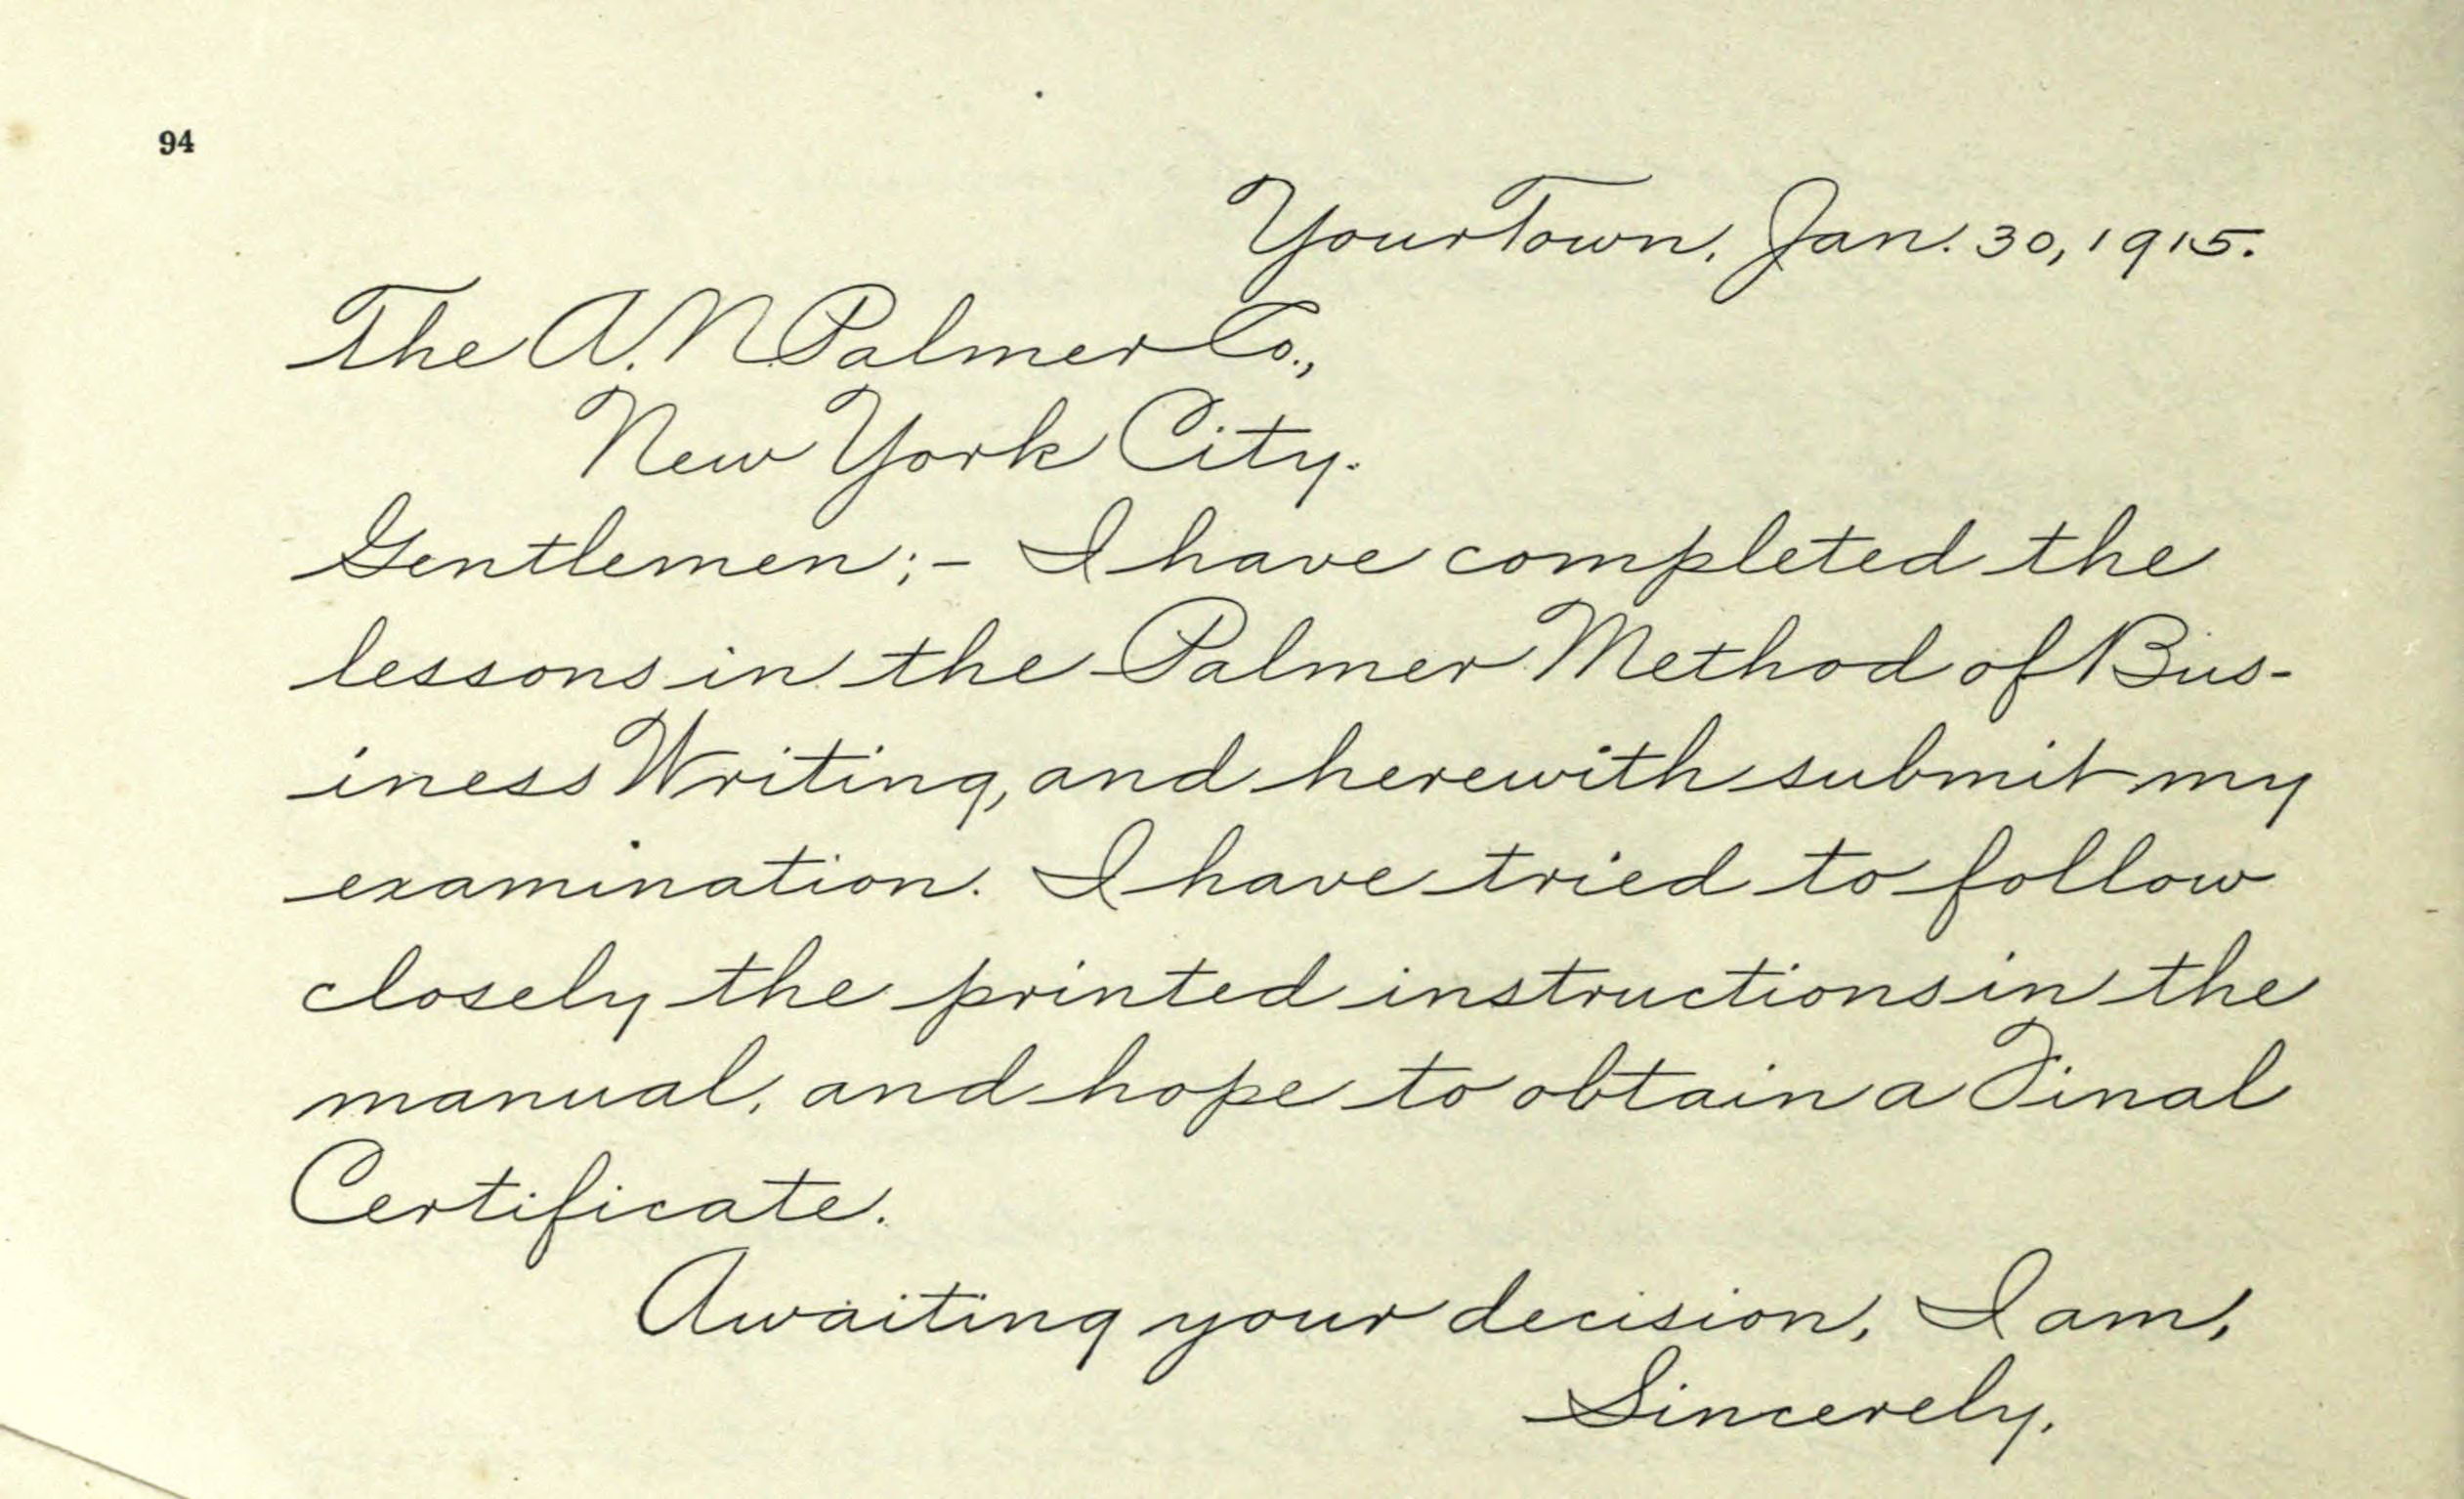 94
Your Town, Jan. 30, 1915.
The A. N. Palmer Co.,
New York City.
Gentlemen;- I have completed the
lessons in the Palmer Method of Bus-
iness Writing, and herewith submit my
examination. I have tried to follow
closely the printed instructions in the
manual, and hope to obtain a Final
Certificate.
Awaiting your decision, I am,
Sincerely,